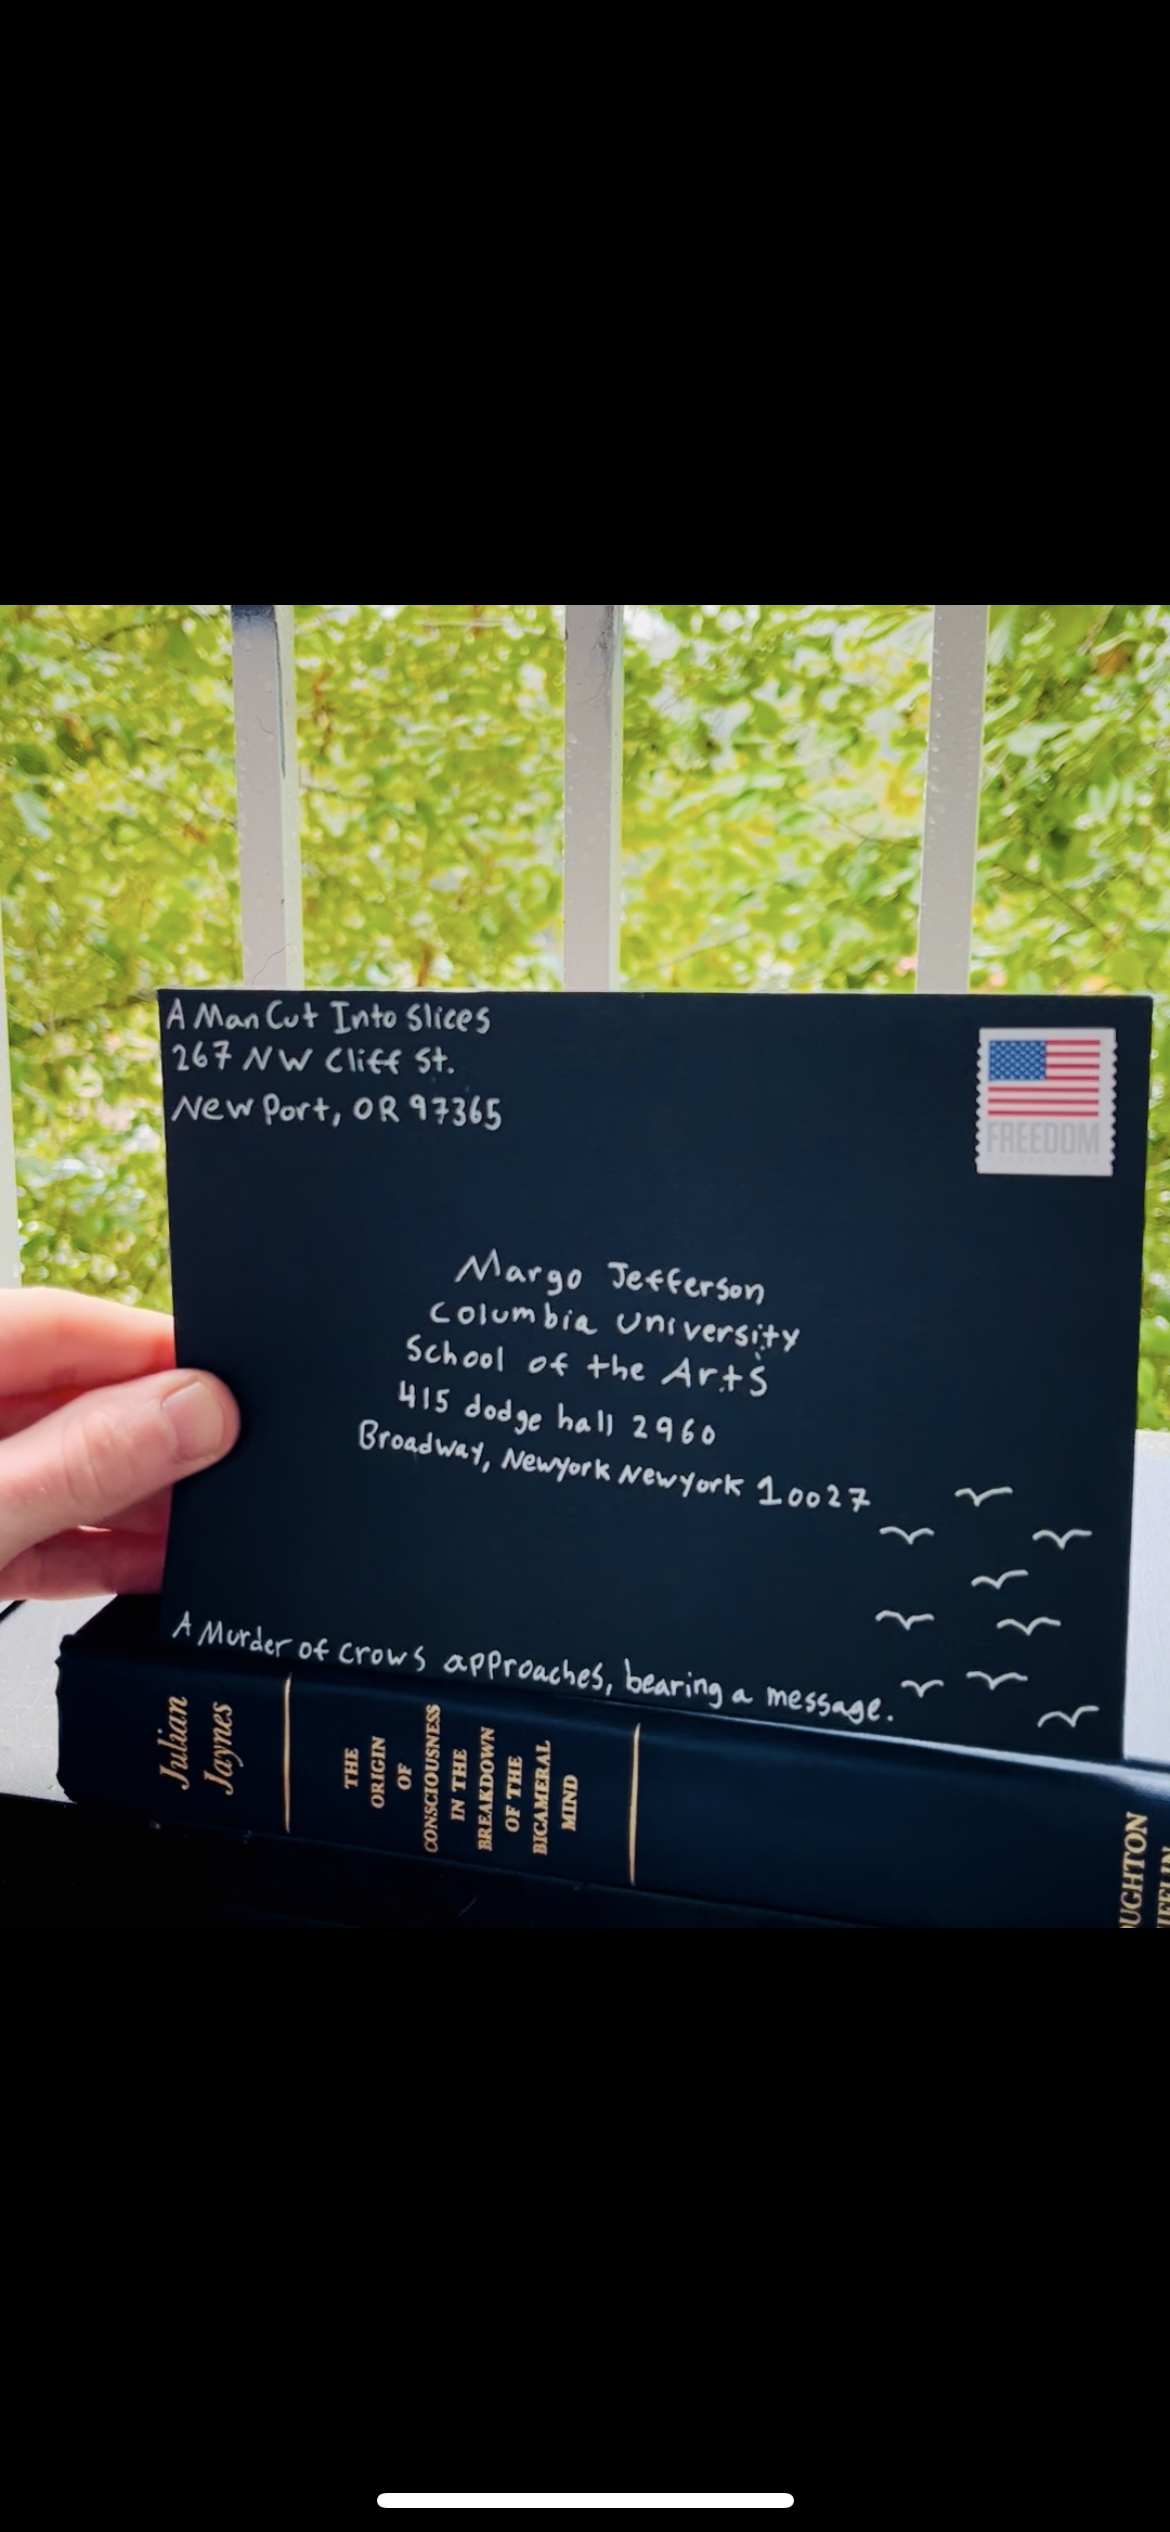 A Man Cut Into Slices
267 NW Cliff St.
New Port, OR 97365
FREEDOM
Margo Jefferson
Columbia University
School of the Arts
415 dodge hall 2960
Broadway, Newyork Newyork 10027
A Murder of crows approaches, bearing a message.
Julian
Jaynes
THE
ORIGIN
OF
CONSCIOUSNESS
IN THE
BREAKDOWN
OF THE
BICAMERAL
MIND